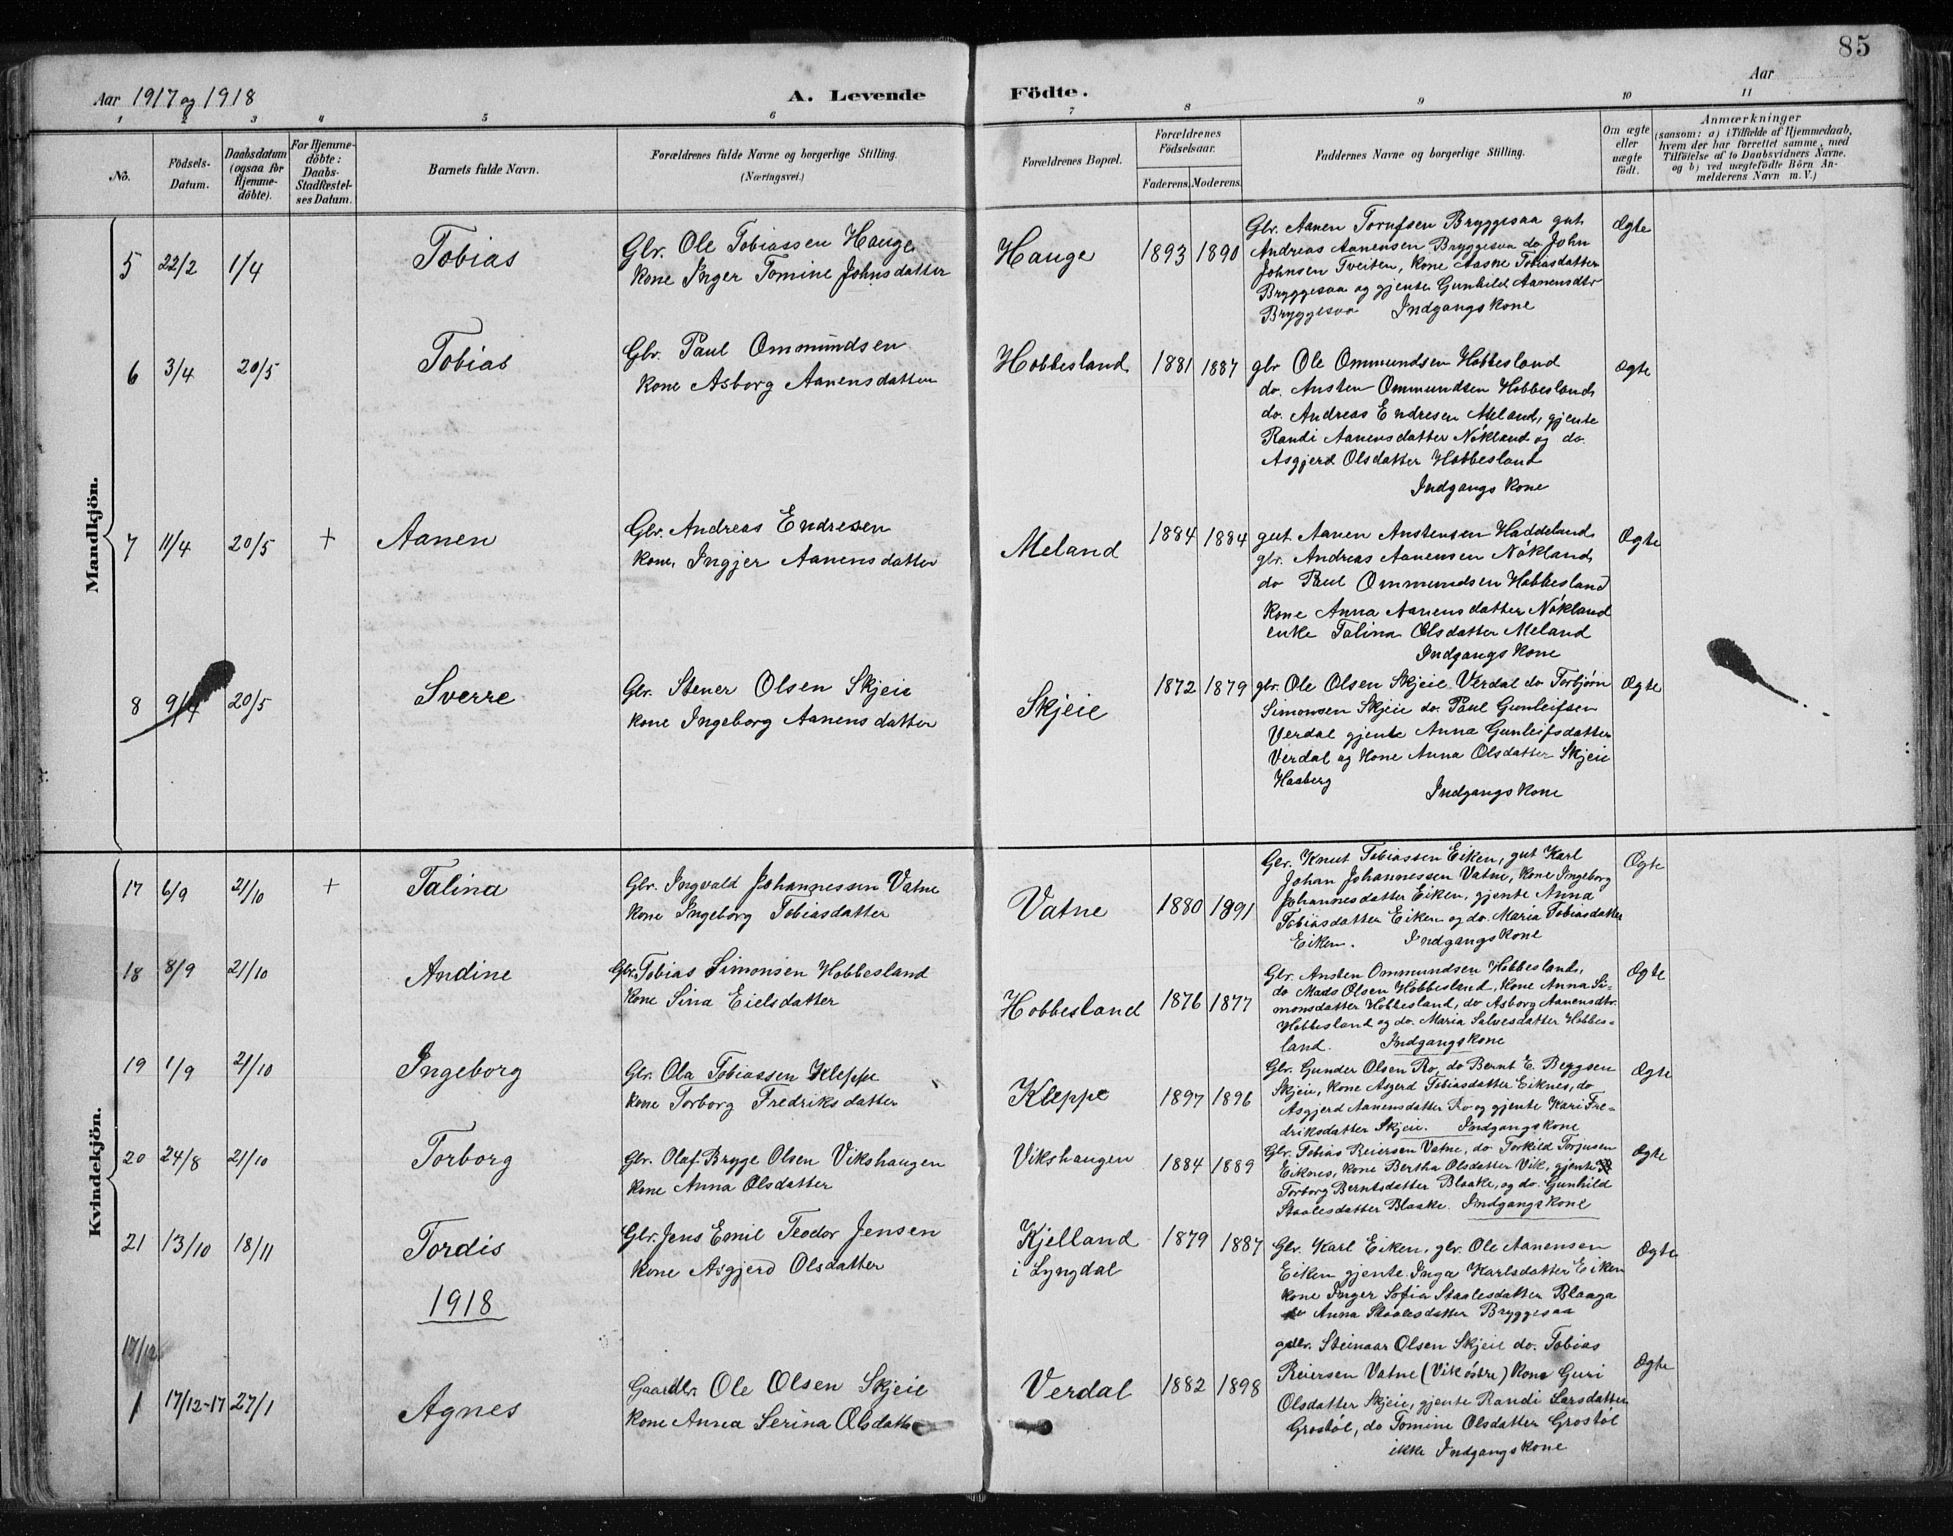 85
Aar 1917 og 1918
A. Levende Födte.
Aar
1 2 3 4 5 6 7 8 9 10 11
No.
Födsels-Datum.
Daabsdatum (ogsaa for Hjemme-döbte).
For Hjemme-döbte: Daabs-Stadfæstel-ses Datum.
Barnets fulde Navn.
Forældrenes fulde Navne og borgerlige Stilling.
(Næringsvei.)
Forældrenes Bopæl.
Forældrenes Födselsaar.
Faderens. Moderens.
Faddernes Navne og borgerlige Stilling.
Om ægte eller uægte födt.
Anmærkninger
(saasom: a) i Tilfælde af Hjemmedaab,
hvem der har forrettet samme, med
Tilföielse af to Daabsvidners Navne,
og b) ved uægtefödte Börn An-
melderens Navn m. V.)
Mandkjön.
5 22/2 1/4 Tobias
Gbr. Ole Tobiassen Hauge
kone Inger Tomine Johnsdatter
Hauge 1893 1890
Gbr. Aanen Bryggesaa gut
Andreas Aanensen Bryggesaa do. John
Johnsen Tveiten, kone Aasne Tobiasdatter
Bryggesaa og gjente Gunhild Aanensdtr
Bryggesaa Indgangskone
Ægte
6 3/4 20/5 Tobias
Gbr. Paul Ommundsen
kone Asborg Aanensdatter
Hobbesland 1881 1887
gbr Ole Ommundsen Hobbesland
do. Ansten Ommundsen Hobbesland
do. Andreas Endresen Meland, gjente
Randi Aanensdatter Nökland og do.
Asgjerd Olsdatter Hobbesland
Indgangskone
Ægte
7 11/4 20/5 + Aanen
Gbr. Andreas Endresen
kone Ingjer Aanensdatter
Meland 1884 1884
gut Aanen Anstensen Haddeland
gbr. Andreas Aanensen Nökland
do Paul Ommundsen Hobbesland
kone Anna Aanensdatter Nökland
enke Talina Olsdatter Meland
Indgangskone
Ægte
8 9/4 20/5 Sverre
Gbr. Stener Olsen Skjeie
kone Ingeborg Aanensdatter
Skjeie 1872 1879
gbr. Ole Olsen Skjeie Verdal do Torbjørn
Simonsen Skjeie do. Paul Gunleifsen
Verdal gjente Anna Gunleifsdatter
Verdal og Kone Anna Olsdatter Skjeie
Haaberg
Indgangskone
Ægte
Kvindekjön.
17 6/9 21/10 + Talina
Gbr. Ingvald Johannessen Vatne
kone Ingeborg Tobiasdatter
Vatne 1880 1891
Gbr. Knut Tobiassen Eiken, gut Karl
Johan Johannessen Vatne, kone Ingeborg
Johannesdatter Eiken, gjente Anna
Tobiasdatter Eiken og do. Maria Tobiasdatter
Eiken. Indgangskone
Ægte
18 8/9 21/10 Andine
Gbr. Tobias Simonsen Hobbesland
kone Sina Eielsdatter
Hobbesland 1876 1877
Gbr. Ansten Ommundsen Hobbesland,
do Mads Olsen Hobbesland, kone Anna Si-
monsdatter Hobbesland, do Asborg Aanensdtr.
Hobbesland og do. Maria Salvesdatter Hobbes-
land. Indgangskone
Ægte
19 1/9 21/10 Ingeborg
Gbr. Ola Tobiassen Kleppe
kone Torborg Fredriksdatter
Kleppe 1897 1896
Gbr. Gunder Olsen Ro, do Bernt E.
Skjeie, kone Asgerd Tobiasdatter Eiknes, do
Asgjerd Aanensdatter Ro og gjente Kari Fre-
driksdatter Skjeie. Indgangskone
Ægte
20 24/8 21/10 Torborg
Gbr. Olaf Bryge Olsen Vikshaugen
kone Anna Olsdatter
Vikshaugen 1884 1889
Gbr. Tobias Reiersen Vatne, do Torkild Torjusen
Eiknes, kone Bertha Olsdatter Vik, gjente
Torborg Berntsdatter Blaake, og do. Gunhild
Staalesdatter Blaake. Indgangskone
Ægte
21 13/10 18/11 Tordis
Gbr. Jens Emil Teodor Jensen
kone Asgjerd Olsdatter
Kjelland
i Lyngdal
1879 1887
Gbr. Karl Eiken, gbr. Ole Aanensen
Eiken gjente Inga Karlsdatter Eiken
kone Inger Sofia Staalesdatter Blaaga
do Anna Staalesdatter Bryggesaa
Ægte
1918
17/12
1 17/12-17 27/1 Agnes
Gaardbr. Ole Olsen Skjeie
kone Anna Serina Olsdatter
Verdal 1882 1898
gbr. Steinaar Olsen Skjeie do. Tobias
Reiersen Vatne (Vik østre) kone Guri
Olsdatter Skjeie, gjente Randi Larsdatter
Grostøl, do Tomine Olsdatter Grostøl
ikke Indgangskone
Ægte